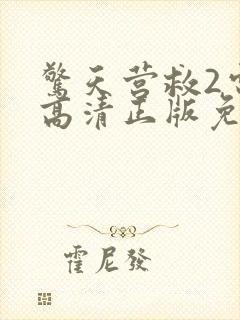 驚天营救2
高清正版免
霍尼發